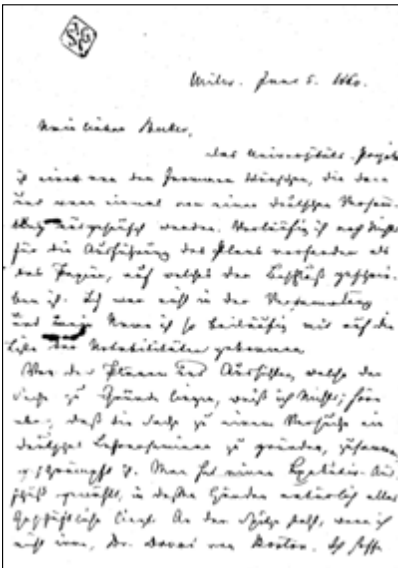 Milw. June 5. 1860.
Mein lieber Butler,
das Universitäts-Projekt
ist eines von den frommen Wünschen, die dann
und wann einmal von einer deutschen Versam
ausgeheckt werden. Vorläufig ist noch Nichts
für die Ausführung des Plans vorhanden als
das Papier, auf welches der Beschluß geschrie-
ben ist. Ich war nicht in der Versammlung
und mein Name ist so beiläufig mit auf die
Liste der Notabilitäten gekommen.
Von den Plänen und Aussichten, welche der
Sache zu Grunde liegen, weiß ich Nichts; höre
aber, daß die Sache zu einem Versuche ein
deutsches Lehrerseminar zu gründen, zusammen
geschrumpft ist. Man hat einen Exekutiv-Aus
schuß gewählt, in dessen Händen natürlich alles
Geschäftliche liegt. An der Spitze steht, wenn ich
nicht irre, Dr. Douai von Boston. Ich hoffe